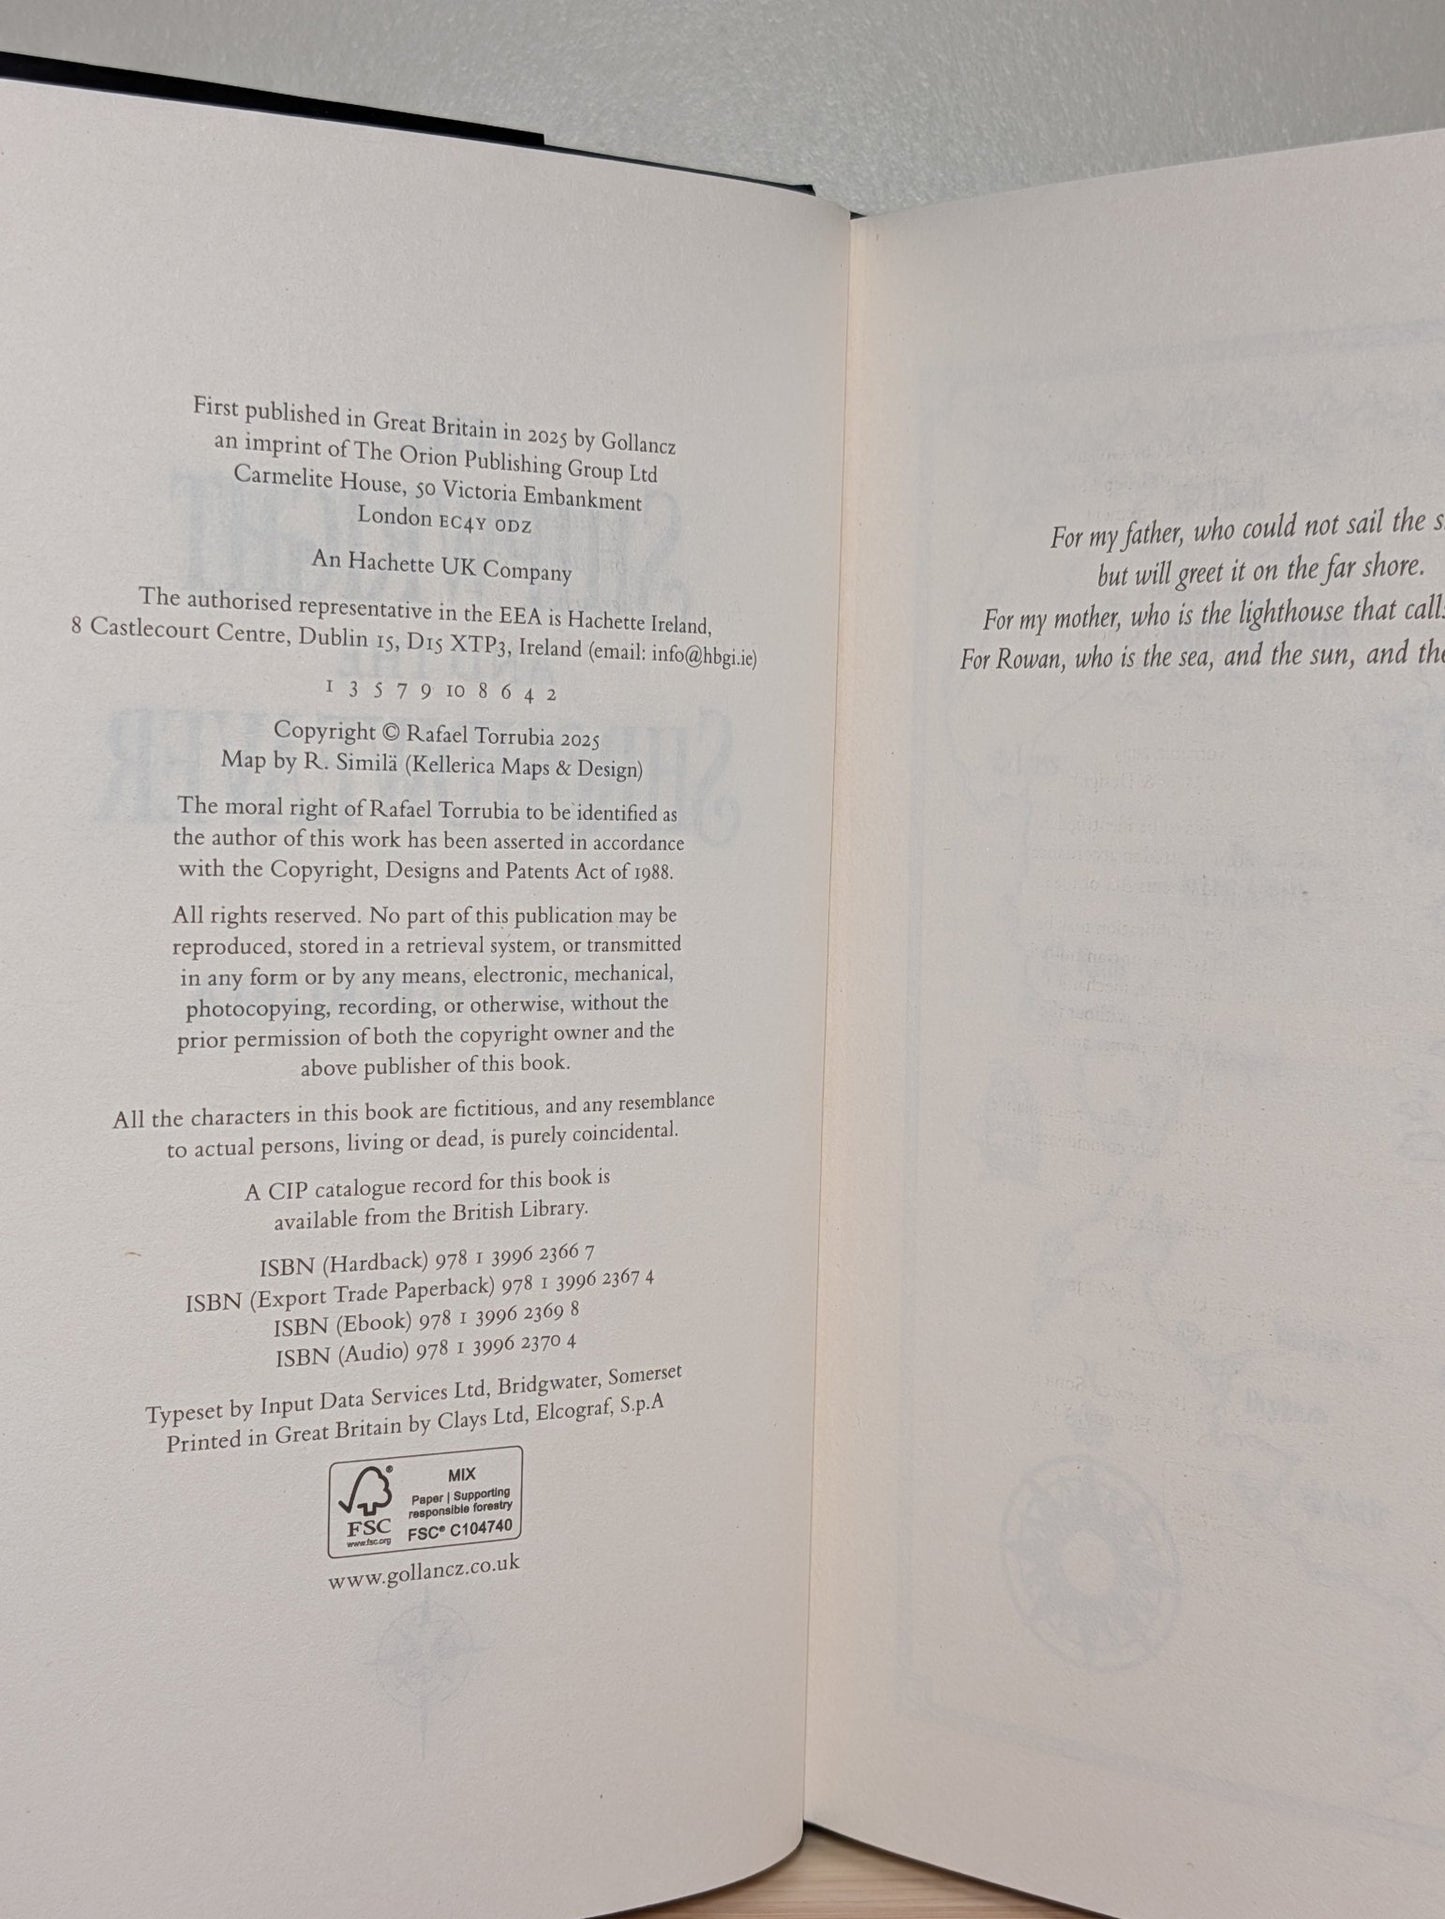 First published in Great Britain in 2025 by Gollancz
an imprint of The Orion Publishing Group Ltd
Carmelite House, 50 Victoria Embankment
London EC4Y 0DZ
An Hachette UK Company
The authorised representative in the EEA is Hachette Ireland,
8 Castlecourt Centre, Dublin 15, D15 XTP3, Ireland (email: info@hbgi.ie)
1 3 5 7 9 10 8 6 4 2
Copyright © Rafael Torrubia 2025
Map by R. Similä (Kellerica Maps & Design)
The moral right of Rafael Torrubia to be identified as
the author of this work has been asserted in accordance
with the Copyright, Designs and Patents Act of 1988.
All rights reserved. No part of this publication may be
reproduced, stored in a retrieval system, or transmitted
in any form or by any means, electronic, mechanical,
photocopying, recording, or otherwise, without the
prior permission of both the copyright owner and the
above publisher of this book.
All the characters in this book are fictitious, and any resemblance
to actual persons, living or dead, is purely coincidental.
A CIP catalogue record for this book is
available from the British Library.
ISBN (Hardback) 978 1 3996 2366 7
ISBN (Export Trade Paperback) 978 1 3996 2367 4
ISBN (Ebook) 978 1 3996 2369 8
ISBN (Audio) 978 1 3996 2370 4
Typeset by Input Data Services Ltd, Bridgwater, Somerset
Printed in Great Britain by Clays Ltd, Elcograf, S.p.A
FSC
www.fsc.org
MIX
Paper | Supporting
responsible forestry
FSC® C104740
www.gollancz.co.uk
For my father, who could not sail the
but will greet it on the far shore.
For my mother, who is the lighthouse that
For Rowan, who is the sea, and the sun, and